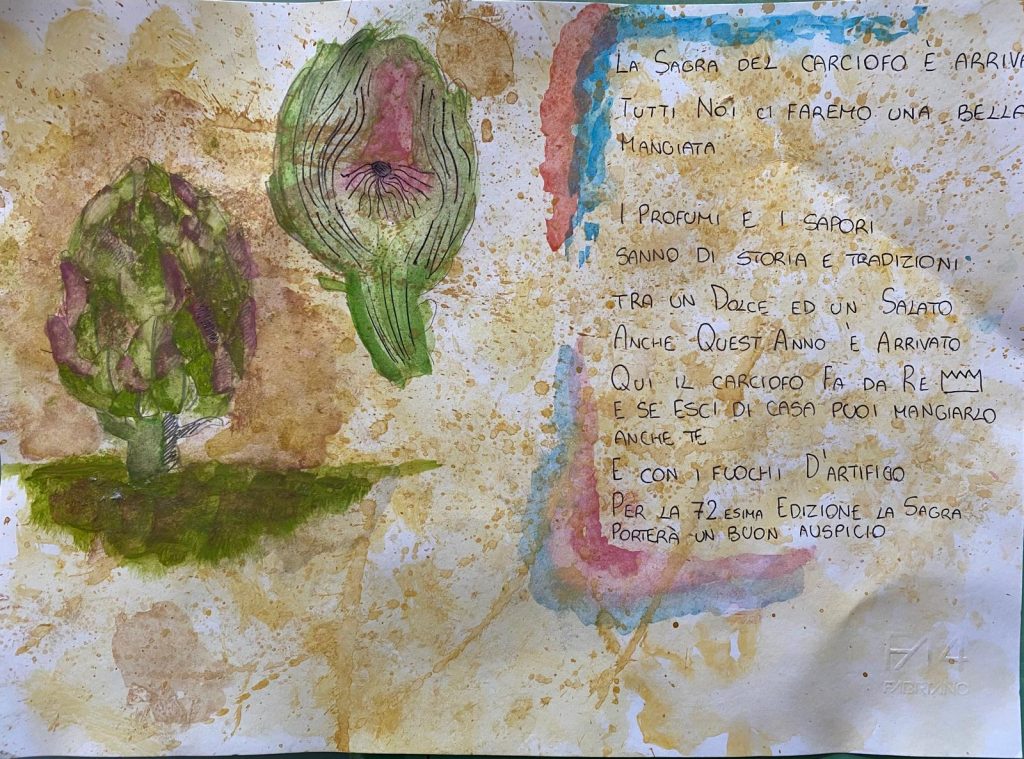 LA SAGRA DEL CARCIOFO È ARRIVA
TUTTI NOI CI FAREMO UNA BELLA
MANGIATA
I PROFUMI E I SAPORI
SANNO DI STORIA E TRADIZIONI
TRA UN DOLCE ED UN SALATO
ANCHE QUEST'ANNO È ARRIVATO
QUI IL CARCIOFO FA DA RE
E SE ESCI DI CASA PUOI MANGIARLO
ANCHE TE
E CON I FUOCHI D'ARTIFICO
PER LA 72ESIMA EDIZIONE LA SAGRA
PORTERÀ UN BUON AUSPICIO
F4
FABRIANO